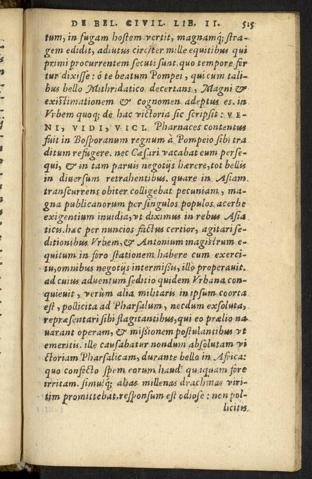 DE BEL. CIVIL. LIB. II. 515
tum, in fugam hostem vertit, magnamq; stra-
gem edidit, adiutus circiter mille equitibus qui
primi procurrentem secuti sunt. quo tempore fer
tur dixisse: ô te beatum Pompei, qui cum talibus
bus bello Mithridatico decertans, Magni &
existimationem & cognomen adeptus es. in
Vrbem quoq; de hac victoria sic scripsit: VE
NI, VIDI, VICI. Pharnaces contentus
fuit in Bosporanum regnum à Pompeio sibi tra
ditum refugere. nec Cæsari vacabat eum perse-
qui, & in tam paruis negotijs hærere, tot bellis
in diuersum retrahentibus. quare in Asiam
transcurrens obiter colligebat pecuniam, ma-
gna publicanorum per singulos populos acerbe
exigentium inuidia, vt diximus in rebus Asia
ticis. hac per nuncios factus certior, agitari se-
ditionibus Vrbem, & Antonium magistrum e-
quitum in foro stationem habere cum exerci-
tu, omnibus negotijs intermißis, illò properauit.
ad cuius aduentum seditio quidem Vrbana con-
quieuit, verùm alia militaris in ipsum coorta
est, pollicita ad Pharsalum, necdum exsoluta,
repræsentari sibi flagitantibus, qui eo prælio na
uarant operam, & mißionem postulantibus vt
emeritis. ille causabatur nondum absolutam vi
ctoriam Pharsalicam, durante bello in Africa:
quo confecto spem eorum haud quaquam fore
irritam. simulq; alias millenas drachmas viri-
tim promittebat. responsum est odiose: non pol-
licitis